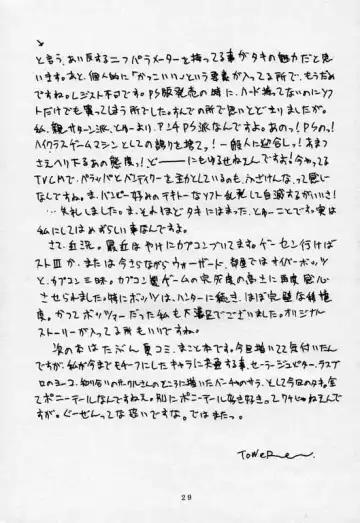 と言う、あい反する二つパラメーターを持ってる事がタキの魅力だと思
います。あと、個人的に「かっこいい」という言葉が入ってる所で、もうだめ
ですね。レジスト不可です。PS版発売の時に、ハード持ってないのにソフ
トだけでも買ってしまう所でした。すんでの所で思いとどまりましたが。
私、親サターン派、とゆーより、アンチPS派なんですよ。あのっ!PSの、っ!
ハイクラスゲームマシンとしての誇りを捨て、っ!一般人に迎合し、っ!あまつ
さえへりくだるあの態度、っ!どーにもゆるせねえんですが!今やってる
TVCMで、パラッパとバンディクーを並べているのも、ふざけんなって感じ
なんですね。ま、パンピー好みのテキトーなソフト乱発して自滅するがいいさ!
…失礼しました。ま、とそれほどタキにはまった、とゆーことで。実は
私にしてはめずらしい事なんですよ。
さて、近況。最近はやけにカプコンづいてます。ゲーセン行けばスト
III か、または今さらながらウォーザード、部屋ではサイバーボッツ
と、カプコン三昧。カプコン製ゲームの完成度の高さに再度感心
させられました。特にボッツは、ハンターに続き、ほぼ完璧な移植
度。かつてボッツマーだった私も大満足でございました。オリジナル
ストーリーが入ってる所もいいですね。
次の本はたぶん夏コミ、まこと本です。今回描いてて気付いたん
ですが、私が今までモチーフにしたキャラに共通する事、セーラージュピター、ラスブ
ロのヨーコ、知り合いのサークルさんのところに描いたバーチャのサラ、として今回のタキ。全
てポニーテールなんですねえ。別にポニーテール好き好き。ってワケじゃねえんで
すが。ぐーぜんってな恐いですな。ではまたっ。
TOWER
29